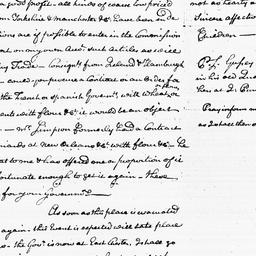 good profit - all kinds of such low priced
m Yorkshire & Manchester &c. Have been in de
tions are if possible to enter in the Commission
at on my own Acct. such articles as will
Trade - Consign't from Ireland & Hamburgh
- could you procure a Contract or an Order for
the French or Spanish Governmt. with Wheat or
ents with flour &c. it would be an object
- Mr. Simpson formerly had a Contract
Islands at New Orleans &c. with flour &c. - he
at to me & has offered me a proportion of it
fortunate enough to get it again - have
for your Government -
As soon as this place is evacuated
again - this Event is expected will take place
- the Govr. is now at East Chester, I shall go
not as hearty a
Sincere affection
Children -
P.S. Gupey
in his old Qua
him at D. Pen
Pray inform m
as I shall then